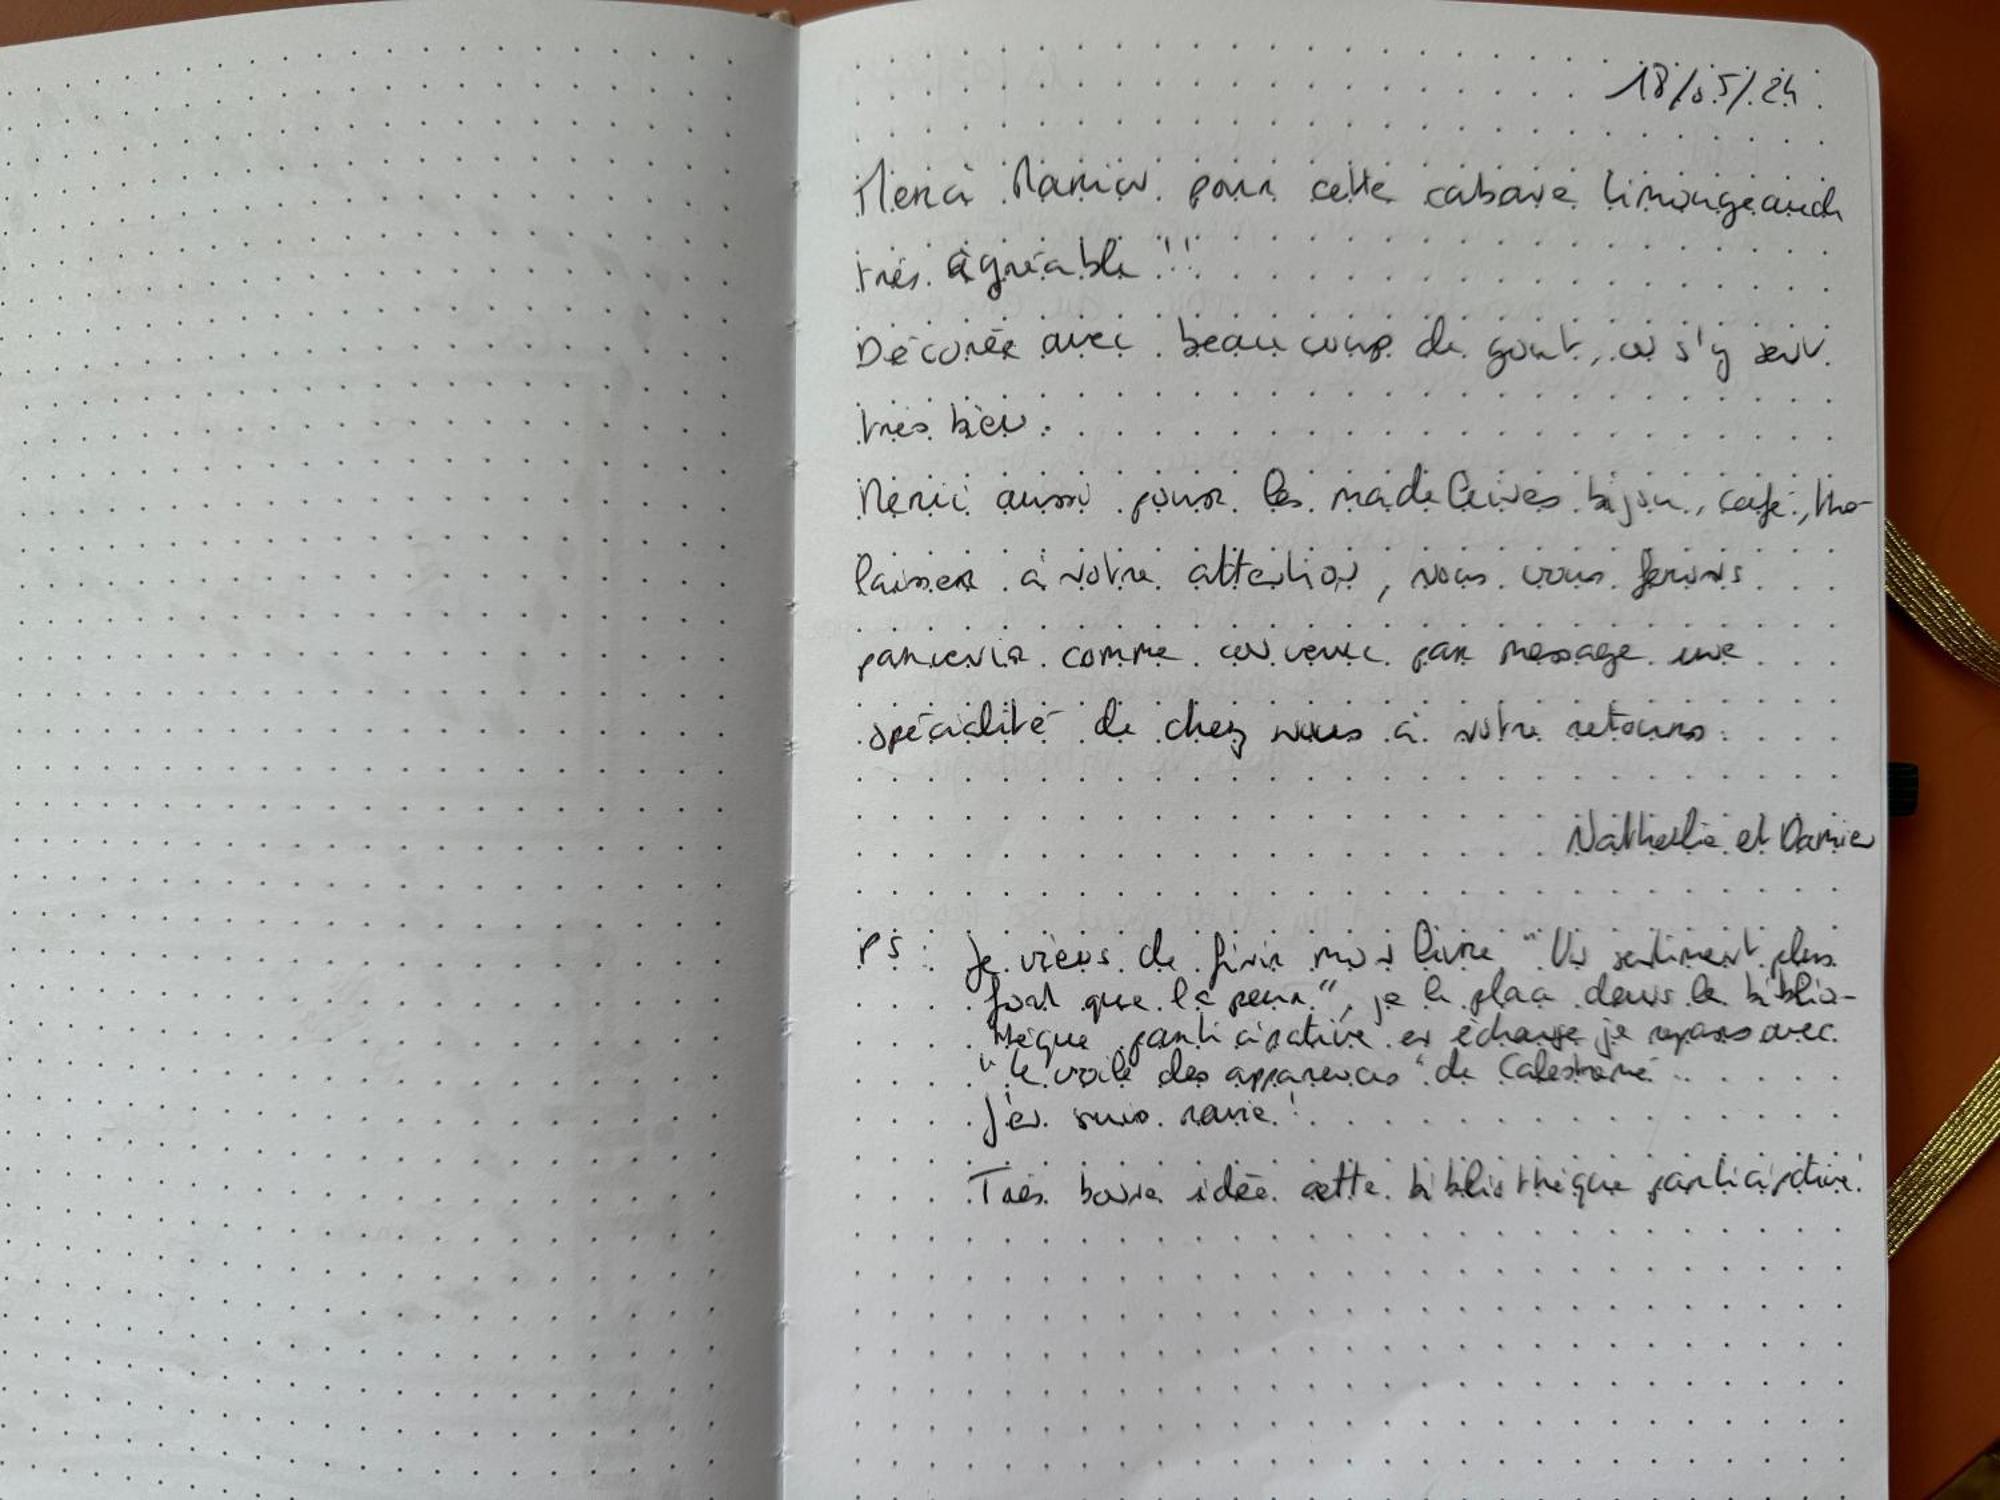 18/05/24
Merci Marion pour cette cabane limougeaude
très agréable !!
Décorée avec beaucoup de gout, on s'y sent
très bien.
Merci aussi pour les madeleines bijou, café, thé
laisser à notre attention, nous vous ferons
parvenir comme convenu par message une
spécialité de chez nous à notre retours.
Nathalie et Damien
PS : Je viens de finir mon livre "Un sentiment plus
fort que la peur", je le place dans la biblio-
thèque participative en échange je repars avec
"Le voile des apparences" de Calestrémé
J'en suis ravie !
Très bonne idée cette bibliothèque participative !